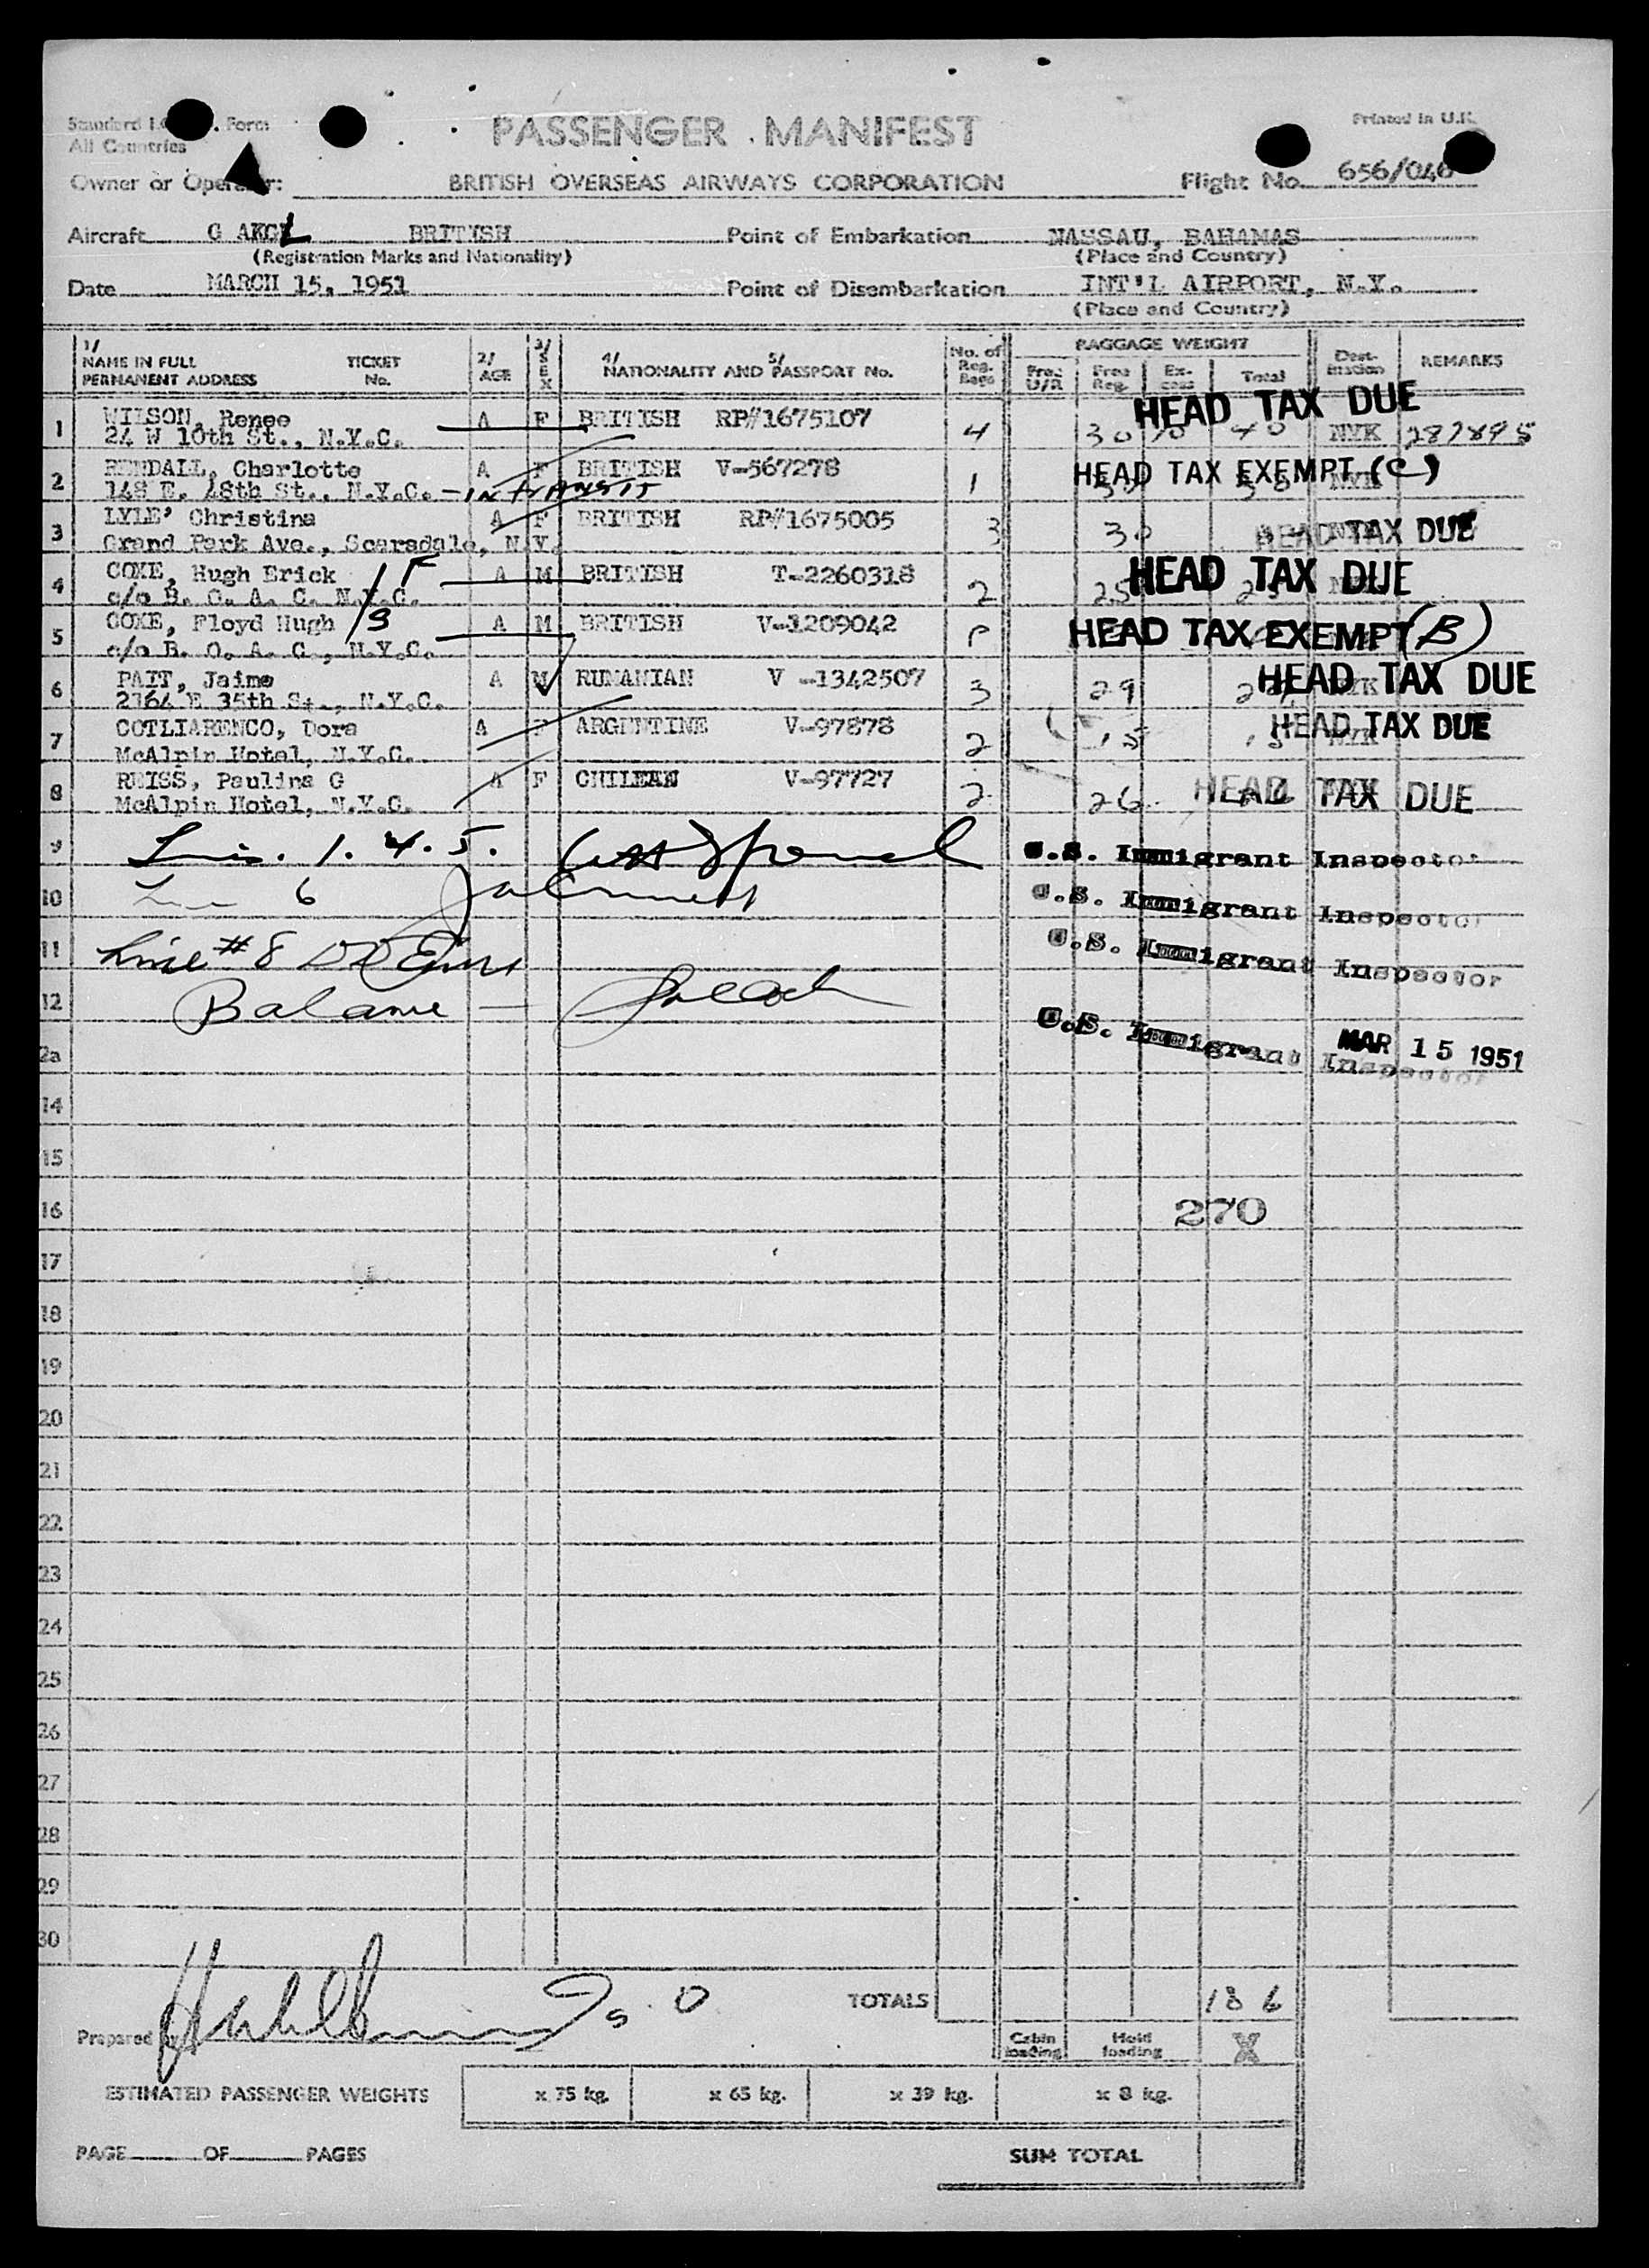 PASSENGER MANIFEST
Printed in U.K.
All Countries
Owner or Operator: BRITISH OVERSEAS AIRWAYS CORPORATION Flight No. 656/046
Aircraft G AKGL BRITISH Point of Embarkation NASSAU, BAHAMAS
(Registration Marks and Nationality) (Place and Country)
Date MARCH 15, 1951 Point of Disembarkation INT'L AIRPORT, N.Y.
(Place and Country)
1/ NAME IN FULL PERMANENT ADDRESS TICKET No. 2/ AGE 3/ SEX 4/ NATIONALITY AND 5/ PASSPORT No. No. of Reg. Bags BAGGAGE WEIGHT Free U/R Free Reg. Ex-cess Total Dest-ination REMARKS
1 WILSON, Renee A F BRITISH RP#1675107 4 30 10 40 NYK 287895 HEAD TAX DUE
24 W 10th St., N.Y.C.
2 RENDALL, Charlotte A F BRITISH V-567278 1 HEAD TAX EXEMPT (C)
148 E. 48th St., N.Y.C. - IN TRANSIT
3 LYLE' Christina A F BRITISH RP#1675005 3 30 HEAD TAX DUE
Grand Park Ave., Scarsdale, N.Y.
4 COKE, Hugh Erick 1 F A M BRITISH T-2260318 2 25 HEAD TAX DUE
c/o B. O. A. C. N.Y.C.
5 COKE, Floyd Hugh 1/3 A M BRITISH V-1209042 P HEAD TAX EXEMPT (B)
c/o B. O. A. C., N.Y.C.
6 PAIT, Jaime A M RUMANIAN V -1342507 3 29 29 HEAD TAX DUE
2164 E 35th St., N.Y.C.
7 COTLIARENCO, Dora A F ARGENTINE V-97878 2 15 15 HEAD TAX DUE
McAlpin Hotel, N.Y.C.
8 REISS, Paulina G A F CHILEAN V-97727 2 26 HEAD TAX DUE
McAlpin Hotel, N.Y.C.
9 1. 4. 5. U.S. Immigrant Inspector
10 6 U.S. Immigrant Inspector
11 Line #8 U.S. Immigrant Inspector
12 Balance - U.S. Immigrant Inspector
2a MAR 15 1951
14
15
16 270
17
18
19
20
21
22
23
24
25
26
27
28
29
30
TOTALS 186
Prepared by
Cabin loading Hold loading X
ESTIMATED PASSENGER WEIGHTS x 75 kg. x 65 kg. x 39 kg. x 8 kg.
PAGE OF PAGES SUM TOTAL